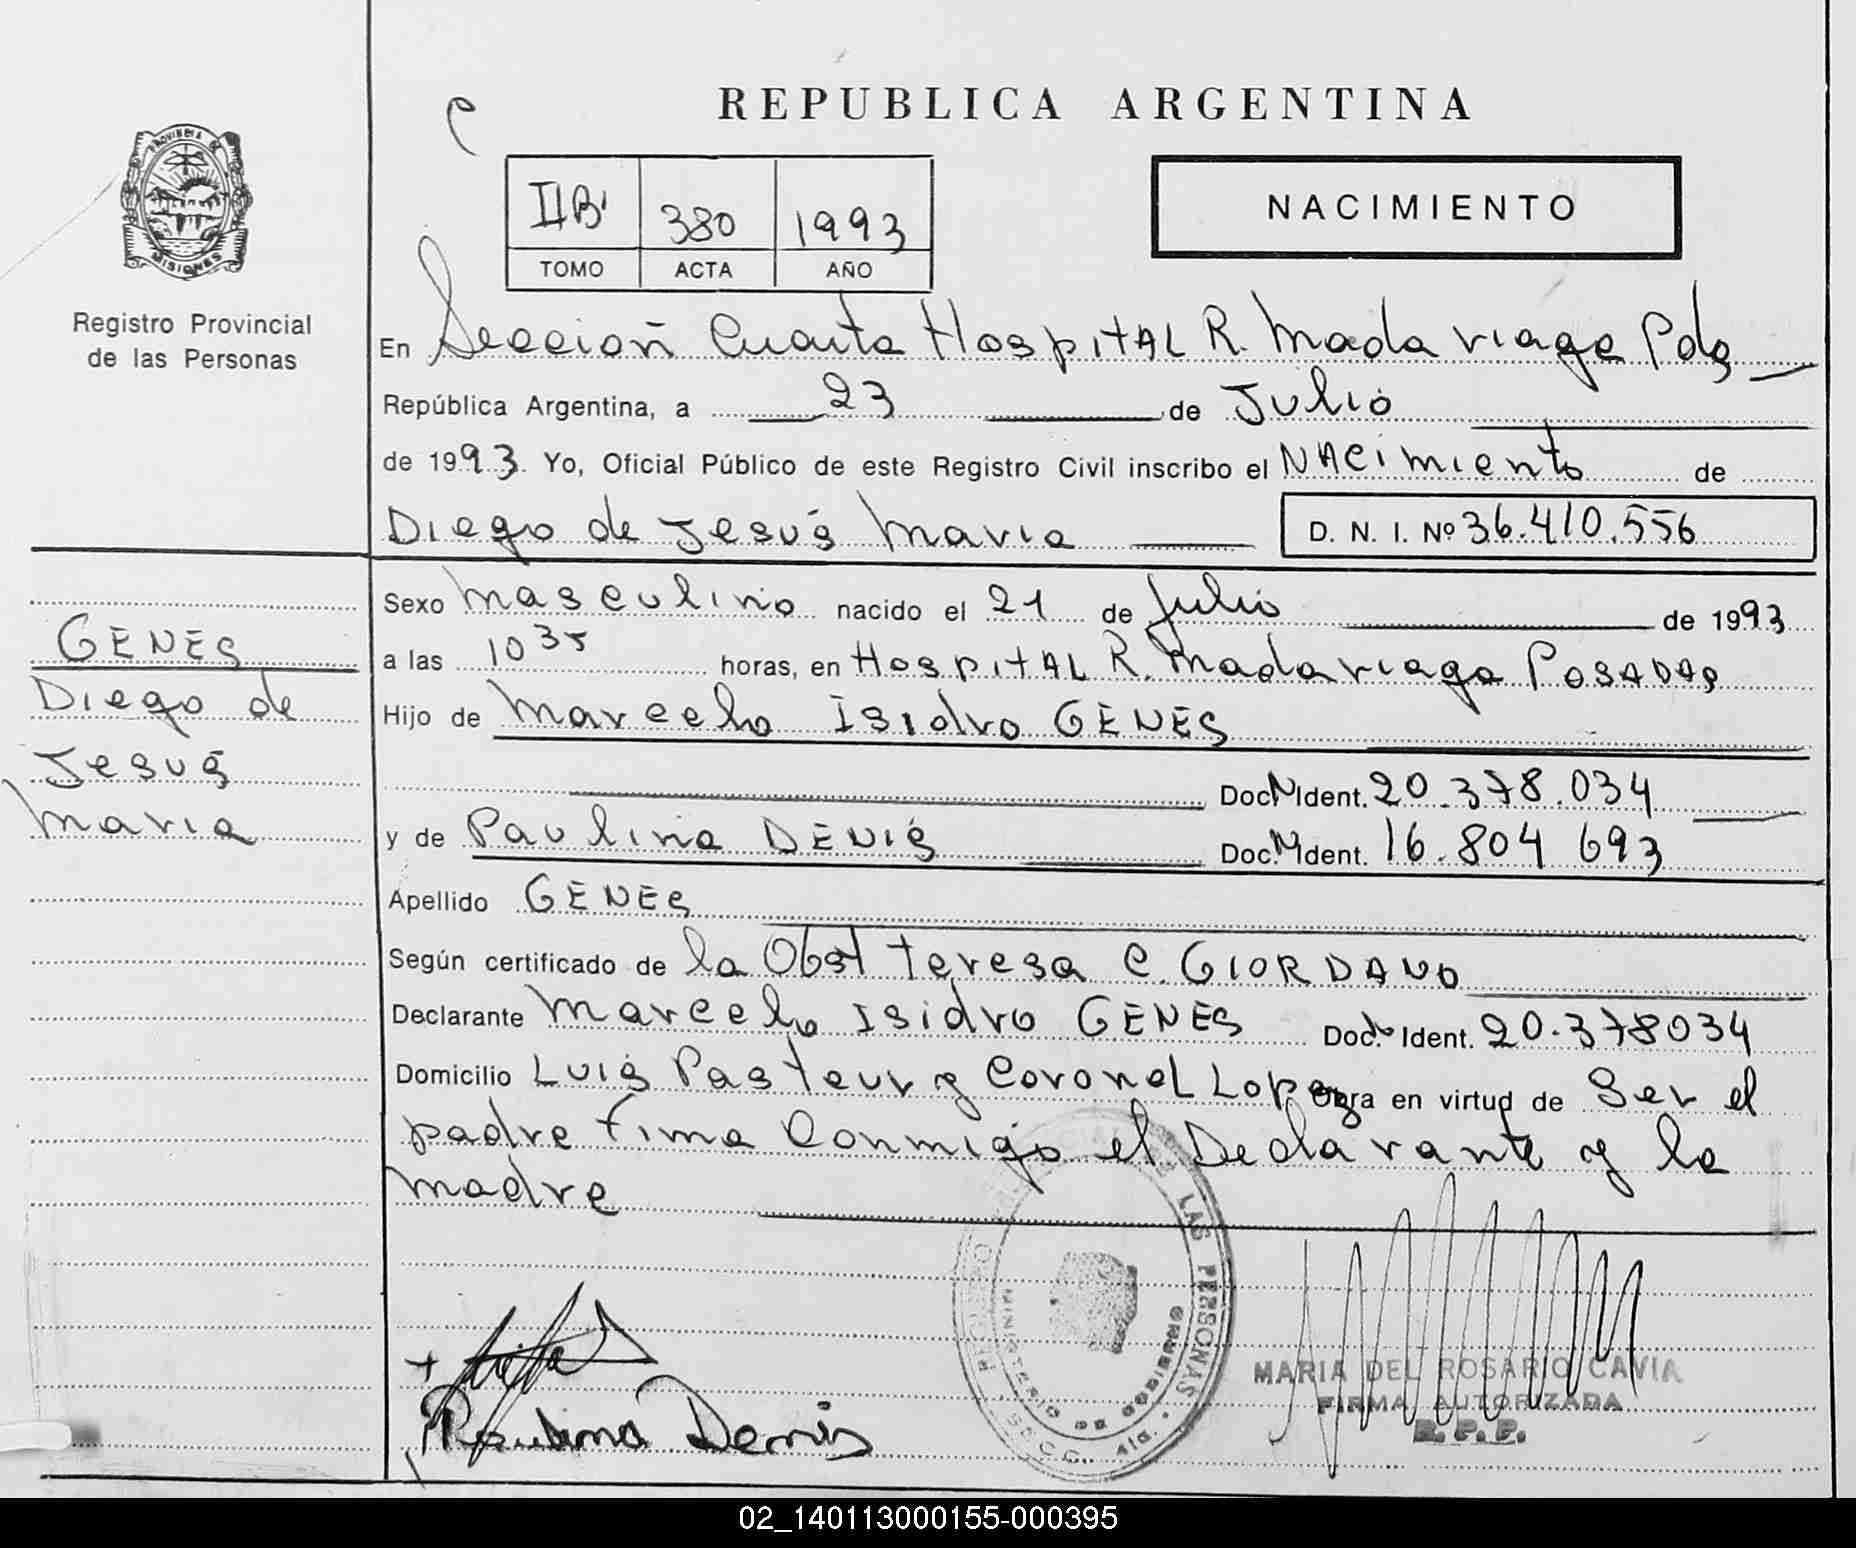 REPUBLICA ARGENTINA
PROVINCIA DE
MISIONES
Registro Provincial
de las Personas
IIB' 380 1993
TOMO ACTA AÑO
NACIMIENTO
En Sección Cuarta Hospital R. Madariaga Pdas
República Argentina, a 23 de Julio
de 1993. Yo, Oficial Público de este Registro Civil inscribo el Nacimiento de
Diego de Jesús Maria D. N. I. Nº 36.410.556
GENES
Diego de
Jesús
Maria
Sexo masculino nacido el 21 de Julio de 1993
a las 10 35 horas, en Hospital R. Madariaga Posadas
Hijo de Marcelo Isidro GENES
Doc. N Ident. 20.378.034
y de Paulina DENIS Doc. N Ident. 16.804 693
Apellido GENES
Según certificado de la Obst Teresa C. GIORDANO
Declarante Marcelo Isidro GENES Doc. N Ident. 20.378034
Domicilio Luis Pasteur y Coronel Lopez Obra en virtud de Ser el
padre Firma Conmigo el Declarante y la
madre
LAS PERSONAS
MINISTERIO DE GOBIERNO
MARIA DEL ROSARIO CAVIA
FIRMA AUTORIZADA
R. P. P.
Paulina Denis
02_140113000155-000395